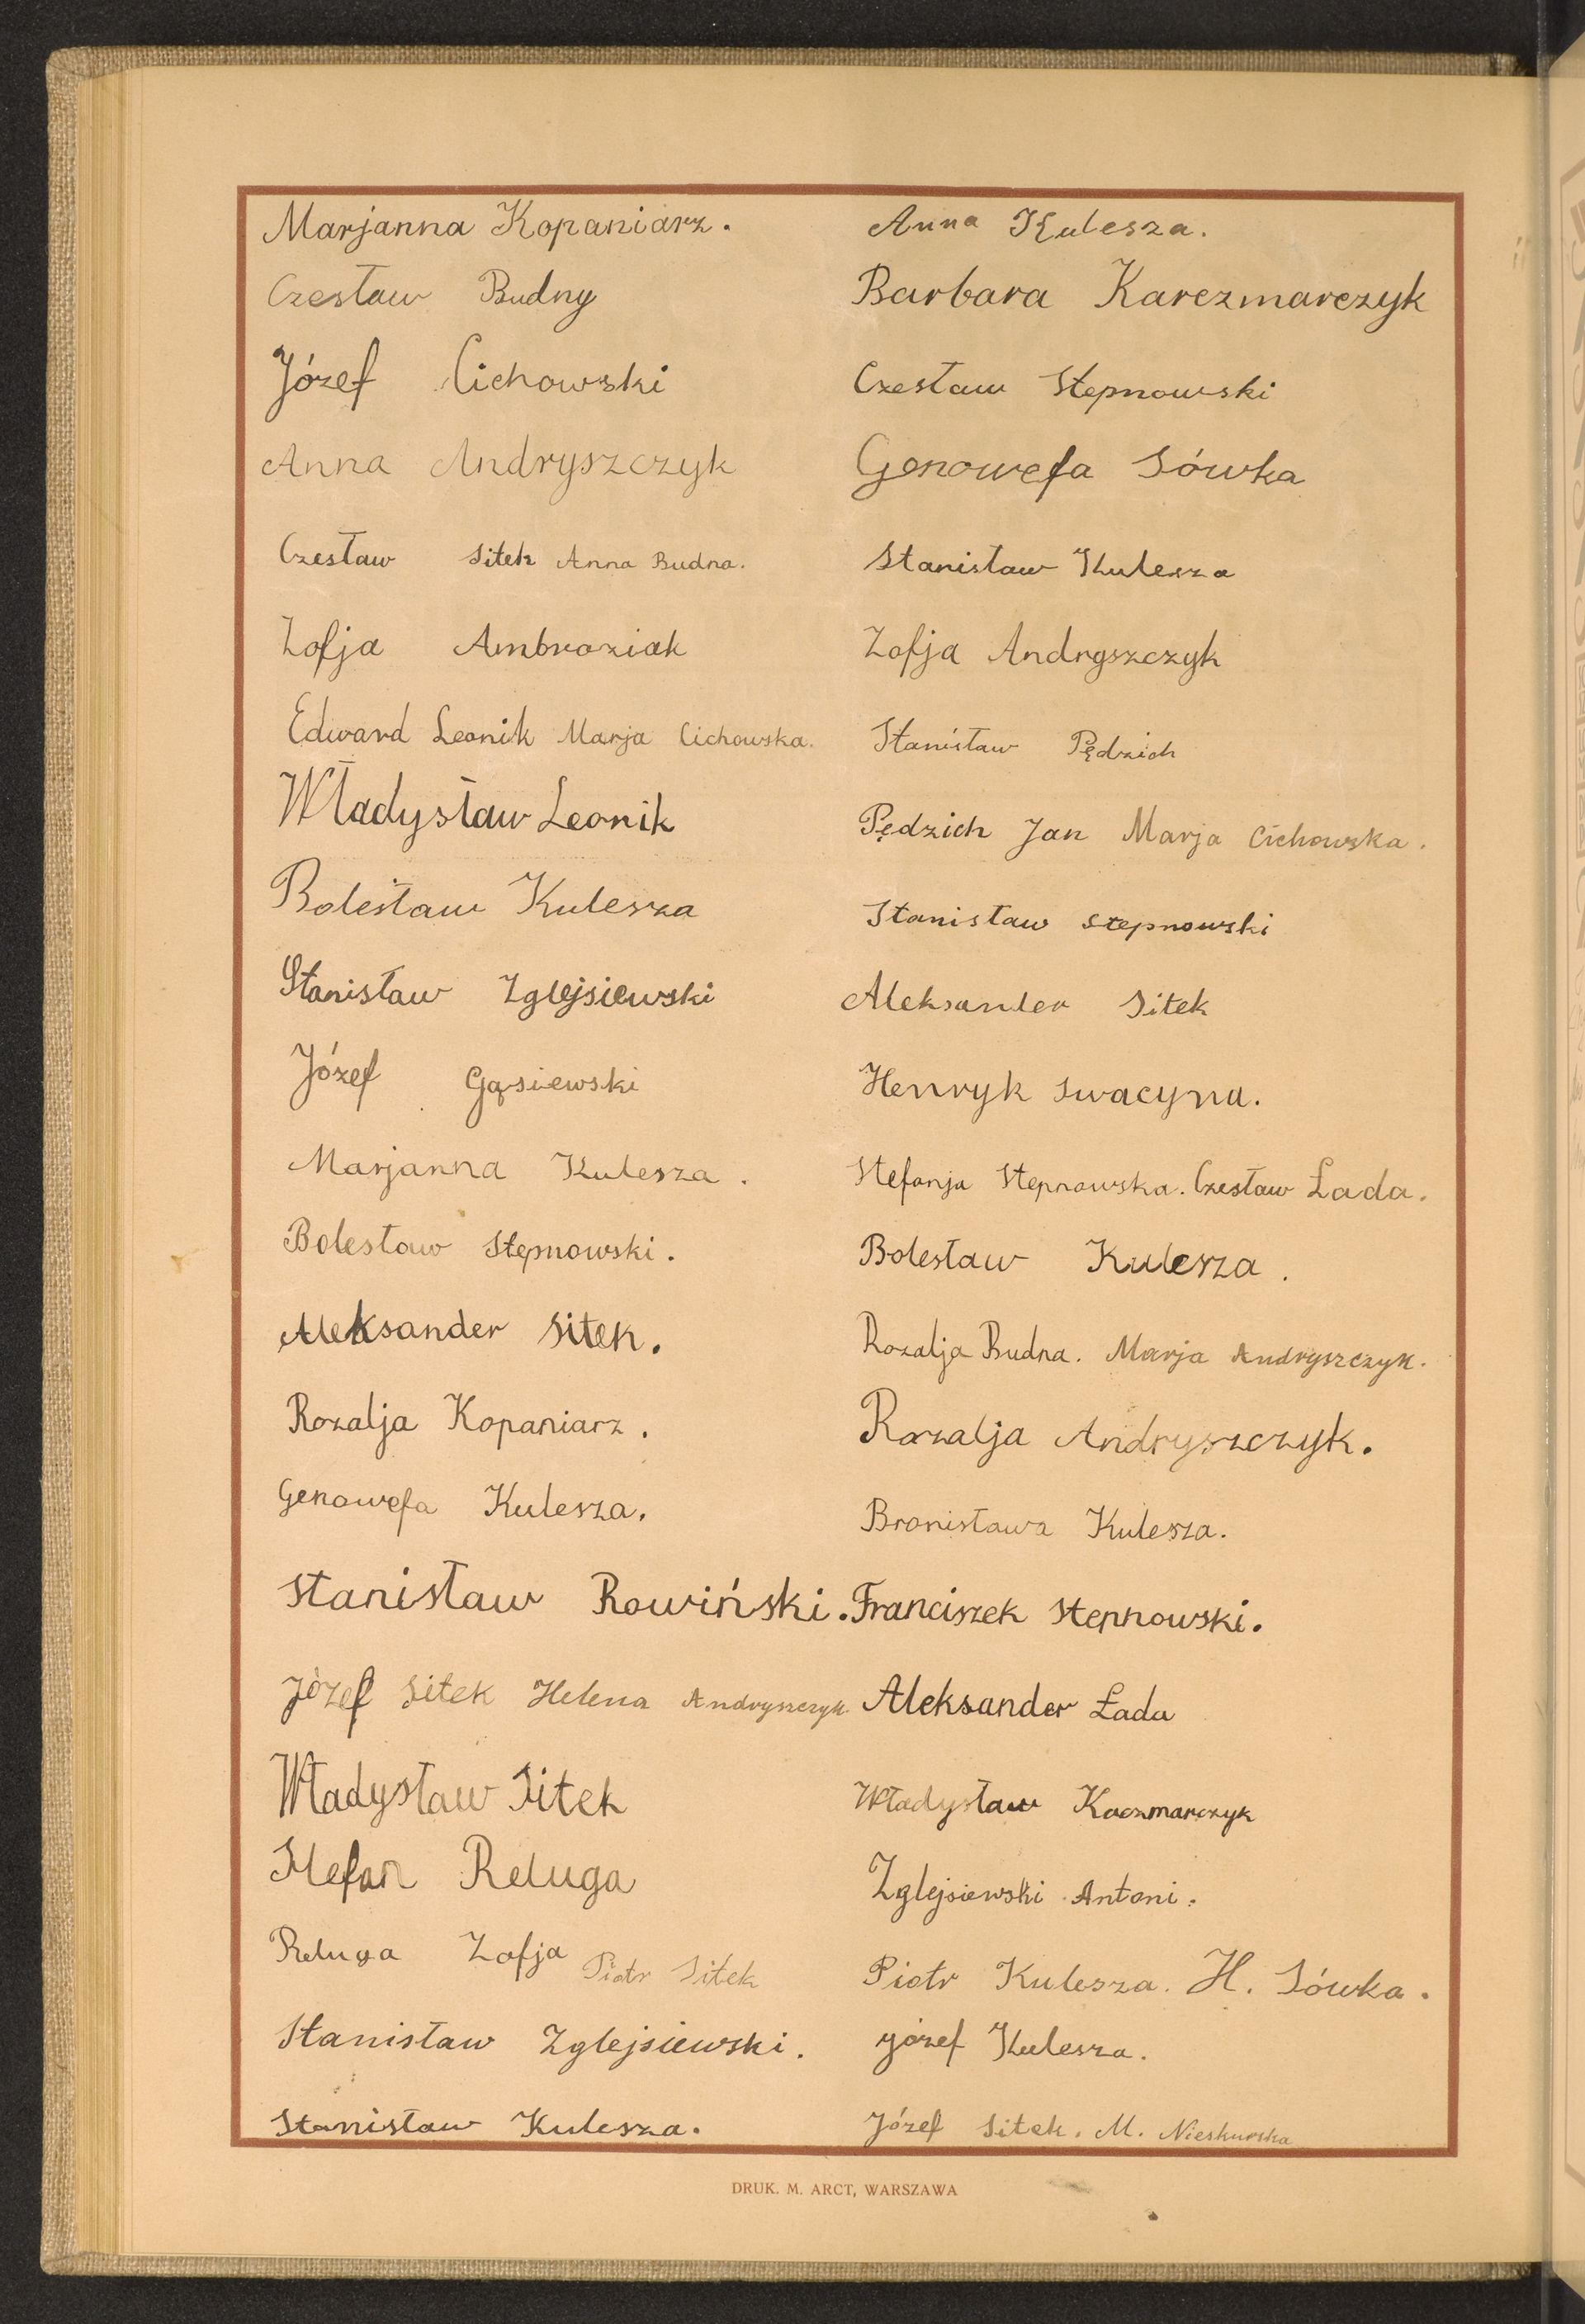 Marjanna Kopaniarz.
Czesław Budny
Józef Cichowski
Anna Andryszczyk
Czesław Sitek Anna Budna.
Zofja Ambroziak
Edward Leonik Marja Cichowska.
Władysław Leonik
Bolesław Kulesza
Stanisław Zglejsiewski
Józef Gąsiewski
Marjanna Kulesza.
Bolesław Stępnowski.
Aleksander Sitek.
Rozalja Kopaniarz.
Genowefa Kulesza.
Stanisław Rowiński.
Józef Sitek Helena Andryszczyk
Władysław Sitek
Stefan Reluga
Reluga Zofja Piotr Sitek
Stanisław Zglejsiewski.
Stanisław Kulesza.
Anna Kulesza.
Barbara Karczmarczyk
Czesław Stepnowski
Genowefa Sówka
Stanisław Kulesza
Zofja Andryszczyk
Stanisław Pędzich
Pędzich Jan Marja Cichowska.
Stanisław Stepnowski
Aleksander Sitek
Henryk Swacyna.
Stefanja Stepnowska. Czesław Łada.
Bolesław Kulesza.
Rozalja Budna. Marja Andryszczyk.
Rozalja Andryszczyk.
Bronisława Kulesza.
Franciszek Stepnowski.
Aleksander Łada
Władysław Kaczmarczyk
Zglejsiewski Antoni.
Piotr Kulesza. H. Sówka.
Józef Kulesza.
Józef Sitek. M. Nieskurska
DRUK. M. ARCT, WARSZAWA